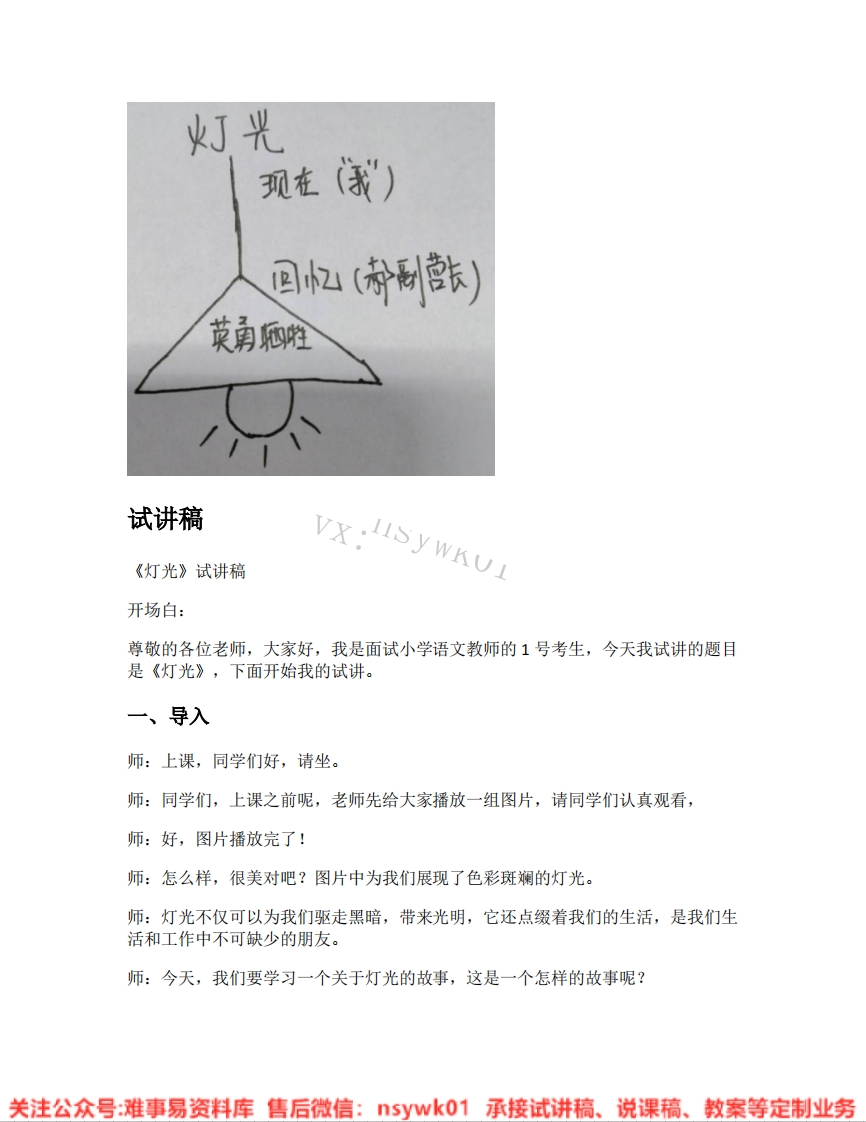 灯光
现在（“我”）
回忆（郝副营长）
英勇牺牲
试讲稿
VX:nsywk01
《灯光》试讲稿
开场白：
尊敬的各位老师，大家好，我是面试小学语文教师的 1 号考生，今天我试讲的题目
是《灯光》，下面开始我的试讲。
一、导入
师：上课，同学们好，请坐。
师：同学们，上课之前呢，老师先给大家播放一组图片，请同学们认真观看，
师：好，图片播放完了！
师：怎么样，很美对吧？图片中为我们展现了色彩斑斓的灯光。
师：灯光不仅可以为我们驱走黑暗，带来光明，它还点缀着我们的生活，是我们生
活和工作中不可缺少的朋友。
师：今天，我们要学习一个关于灯光的故事，这是一个怎样的故事呢？
关注公众号:难事易资料库 售后微信：nsywk01 承接试讲稿、说课稿、教案等定制业务